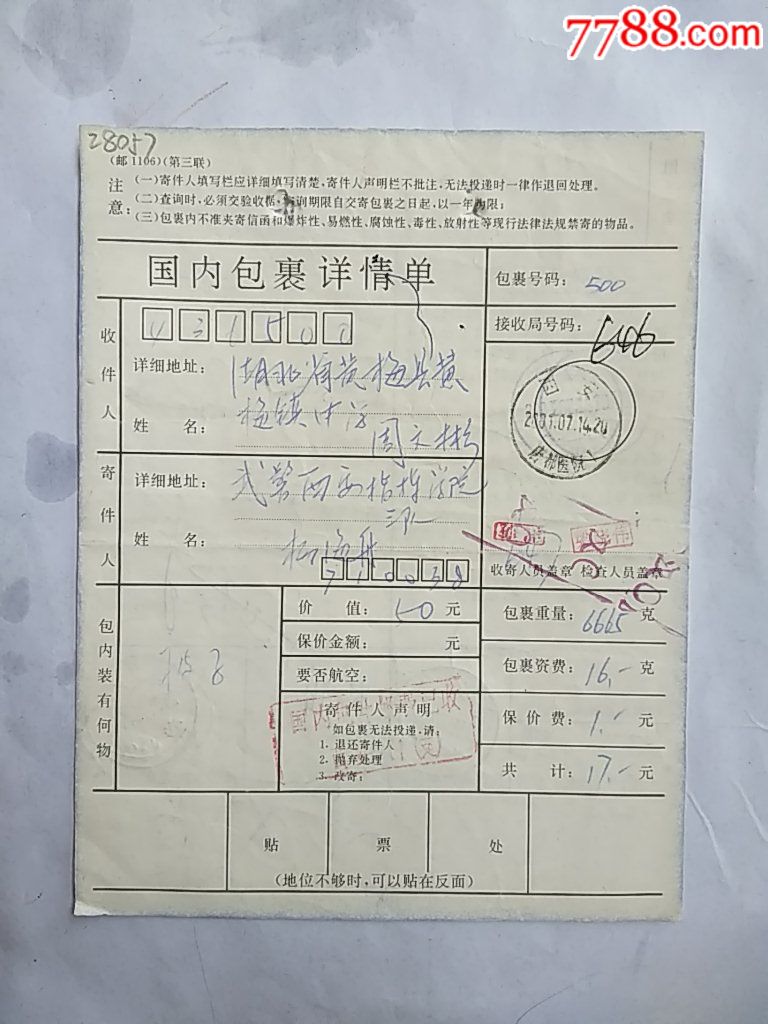 7788.com
28057
(邮1106)(第三联)
注意:
(一)寄件人填写栏应详细填写清楚,寄件人声明栏不批注,无法投递时一律作退回处理。
(二)查询时,必须交验收据,查询期限自交寄包裹之日起,以一年为限;
(三)包裹内不准夹寄信函和爆炸性、易燃性、腐蚀性、毒性、放射性等现行法律法规禁寄的物品。
国内包裹详情单
包裹号码: 500
接收局号码: 646
收件人
431500
详细地址: 湖北省黄梅县黄
梅镇中学
姓 名: 周文彬
西安
2001.07.14.20
1
寄件人
详细地址: 武警西安指挥学院
三队
姓 名: 杨海舟
710038
收寄人员盖章 检查人员盖章
包内装有何物
被子
价 值: 50 元
保价金额: 元
要否航空:
国内
寄件人声明
如包裹无法投递,请:
1. 退还寄件人
2. 抛弃处理
3. 改寄:
包裹重量: 6665 克
包裹资费: 16.- 克
保价费: 1.- 元
共 计: 17.- 元
贴 票 处
(地位不够时,可以贴在反面)